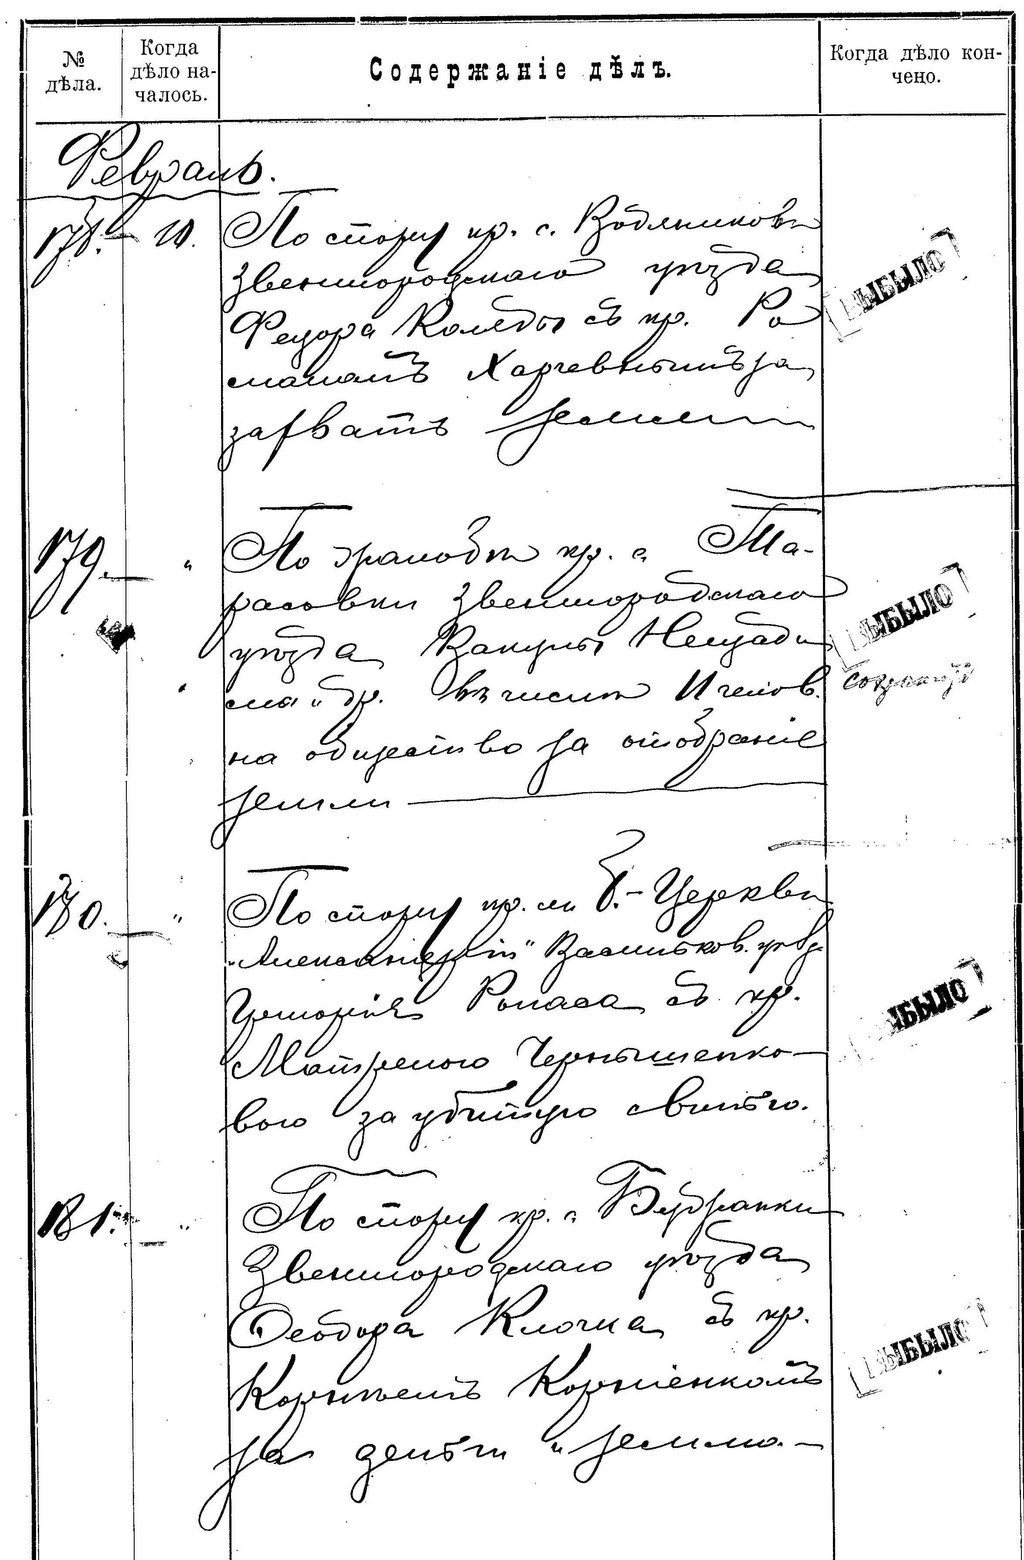 № дѣла.
Когда дѣло на-
чалось.
Содержаніе дѣлъ.
Когда дѣло кон-
чено.
Февраль.
178. — 10. По спору кр. с. Водяниковки
Звенигородскаго уѣзда
Федора Коляды съ кр. Ро
маномъ Харчевнымъ за
захватъ земли
ВЫБЫЛО
179. — " По жалобѣ кр. с. Та-
расовки Звенигородскаго
уѣзда Вакулы
и др. въ числѣ 11 челов.
на общество за отобраніе
земли —
ВЫБЫЛО
180. — " По спору кр. м. Б.-Церкви
"Александрія" Васильков. уѣзд.
Григорія Ропаса съ кр.
Матреною Чернышенко-
вою за убитую свинью.
ВЫБЫЛО
181. — " По спору кр. с. Бужанки
Звенигородскаго уѣзда
Феодора Клочка съ кр.
Корнѣемъ Корніенкомъ
за деньги и землю. —
ВЫБЫЛО